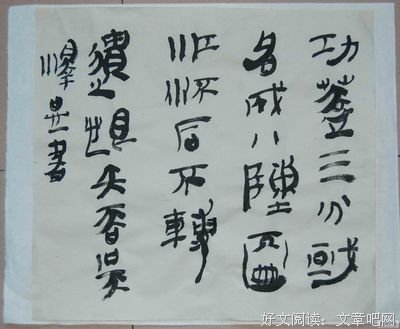 功蓋三分國
名成八陣圖
江流石不轉
遺恨失吞吳
書
好文阅读：文章吧网